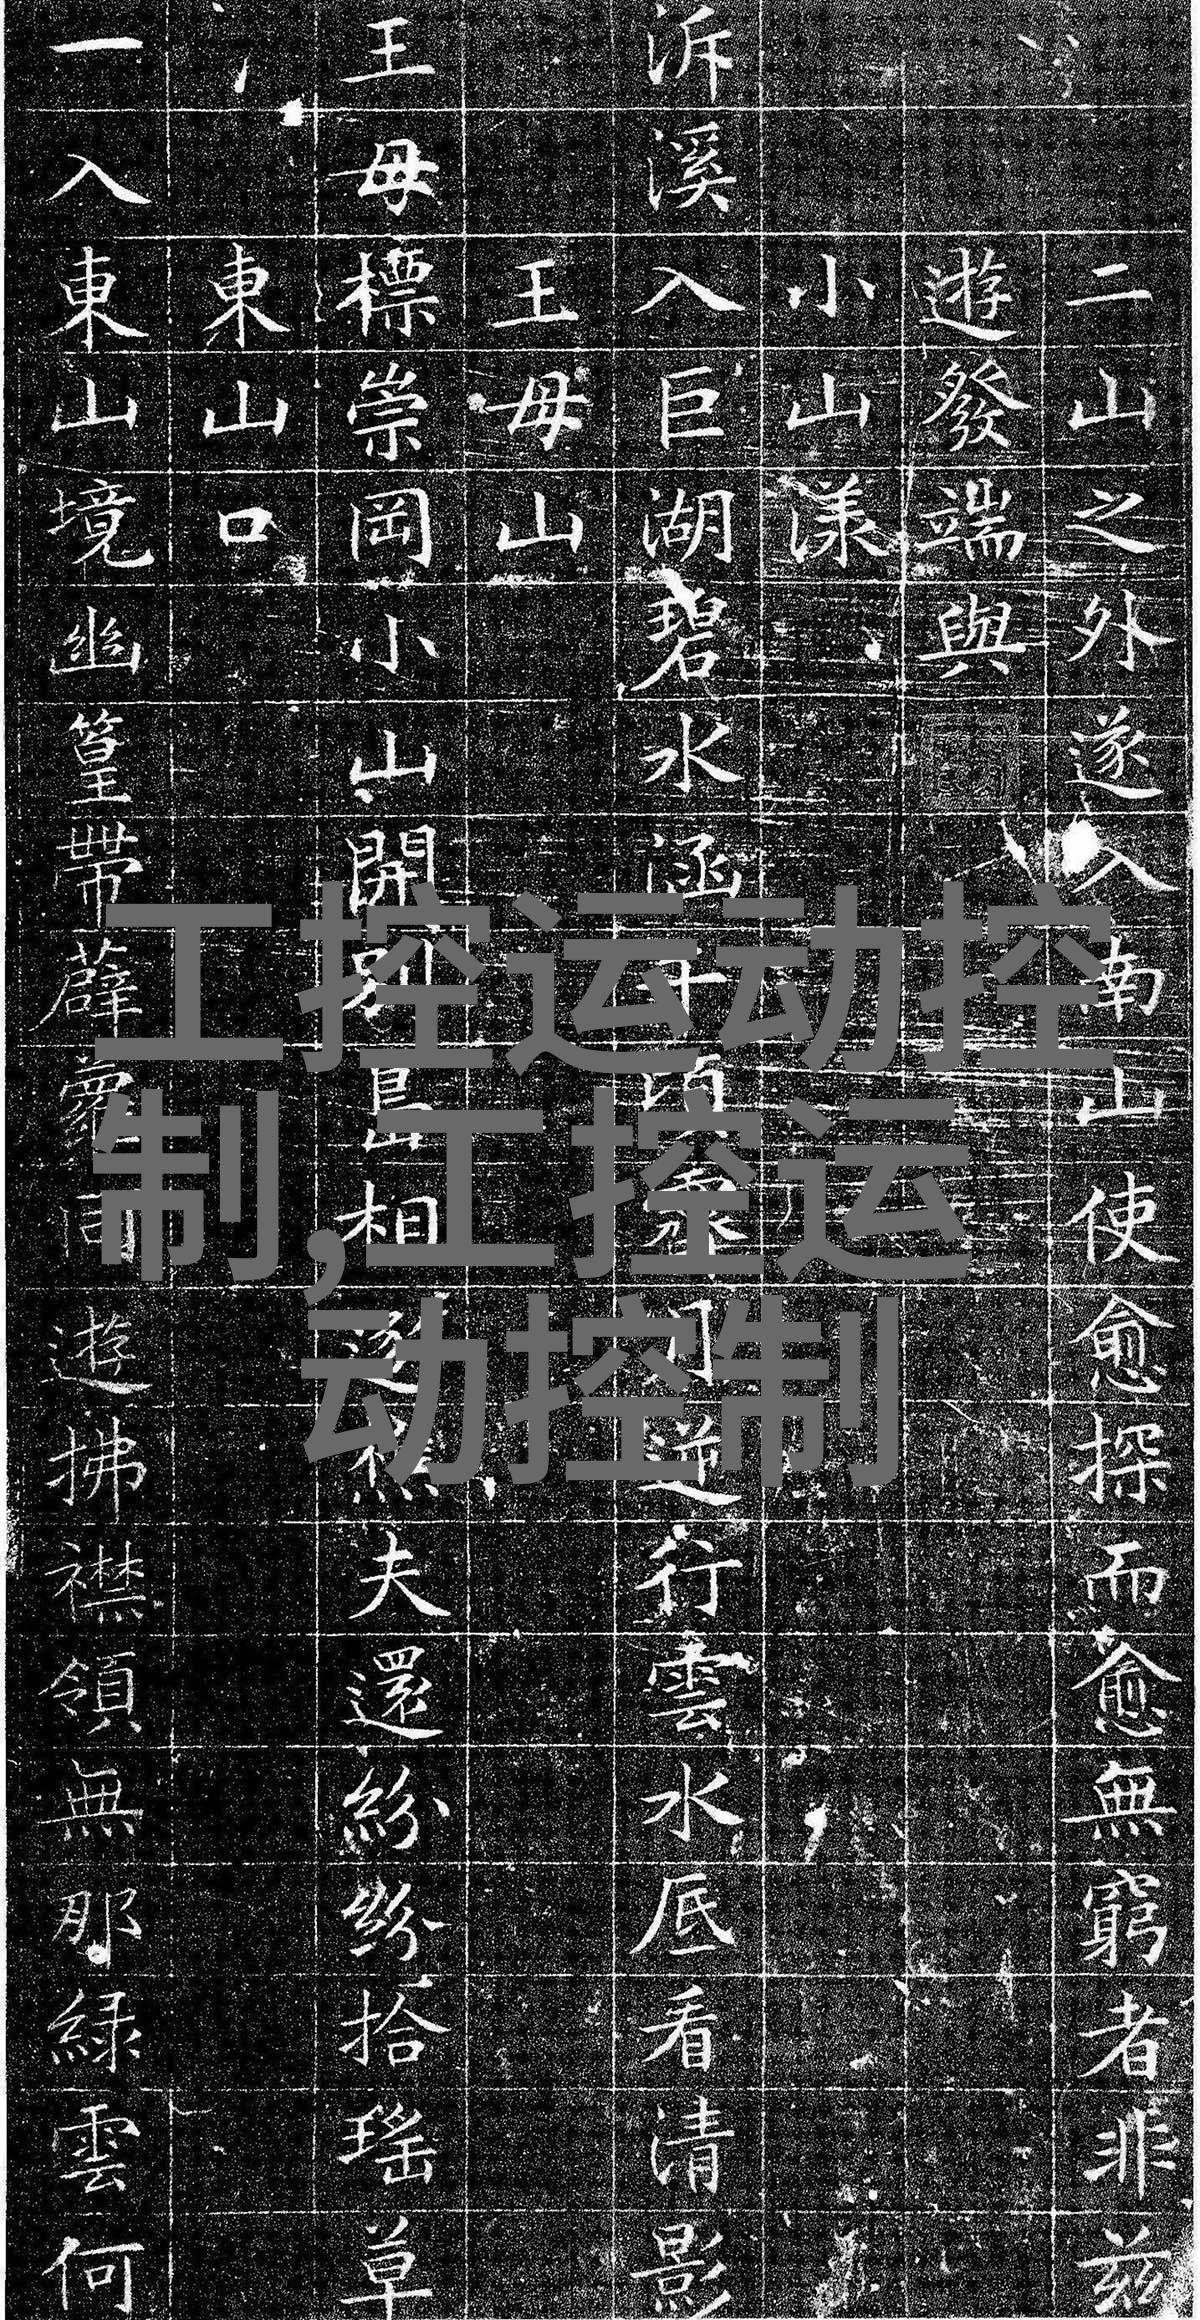 二山之外遂入南山使愈探而愈無窮者非茲
遊發端與
小山漾
泝溪入巨湖碧水涵千頃 行雲水底看清影
王毋山
王毋標崇岡小山開別島相 夫還紛紛拾瑤草
東山口
一入東山境幽篁帶薜 遊拂襟領無那綠雲何
工控运动控
制,工控运
动控制